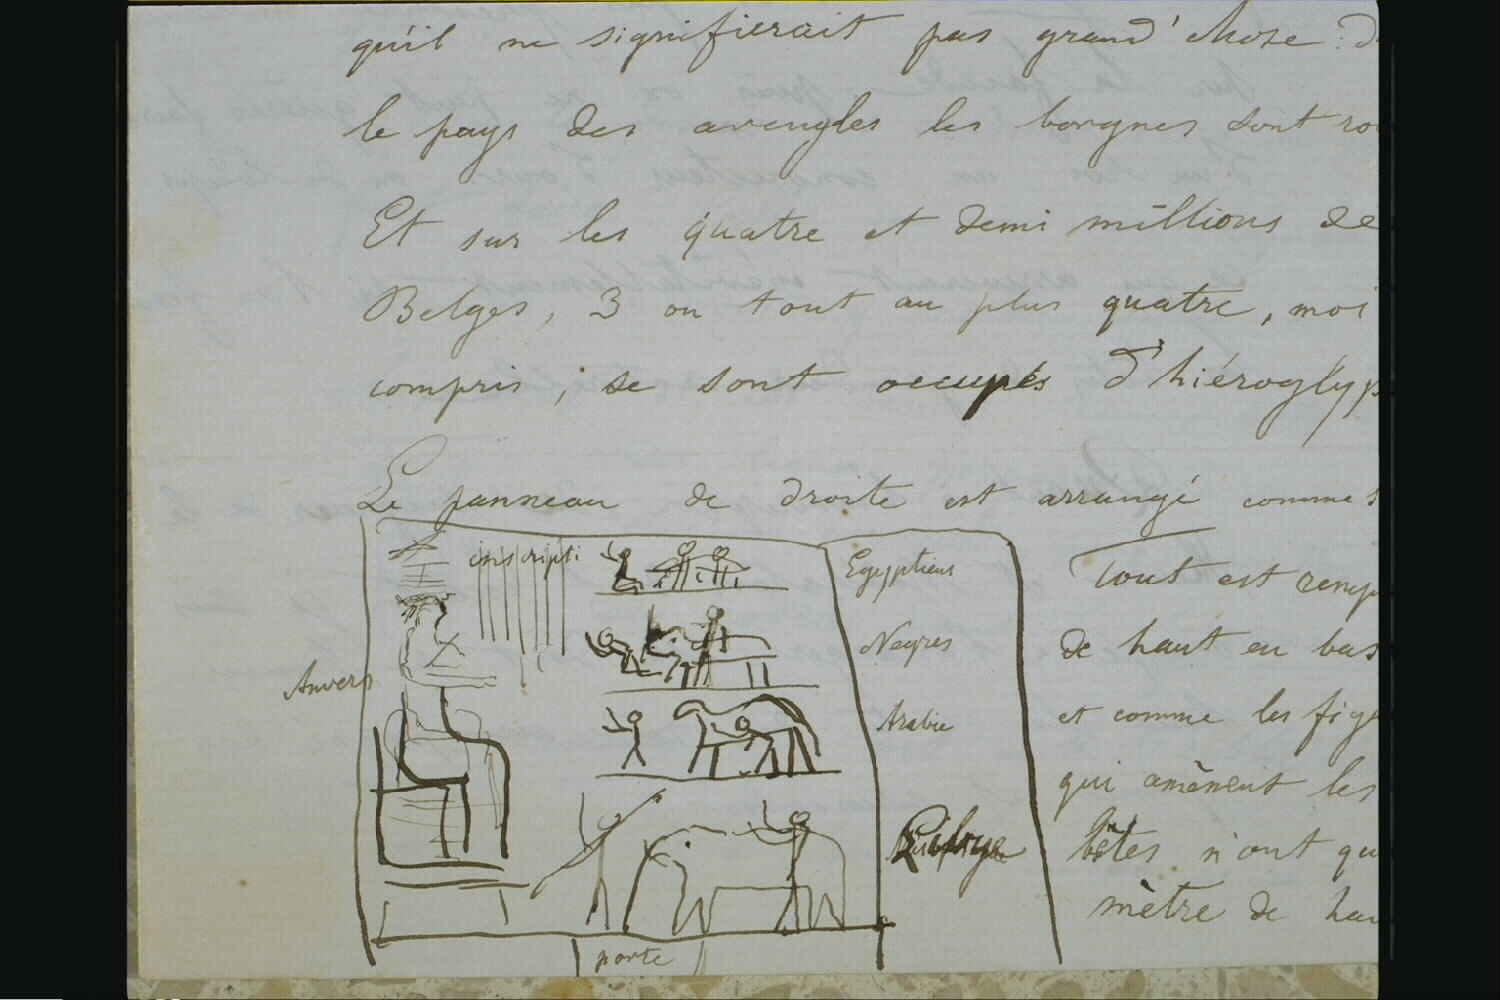 qu'il ne signifierait pas grand'chose : d
le pays des aveugles les borgnes sont roi
Et sur les quatre et demi millions de
Belges, 3 ou tout au plus quatre, moi
compris, se sont occupés d'hiéroglyp
Le panneau de droite est arrangé comme s
inscripti
Egyptiens
Tout est remp
Negres
de haut en bas
Anvers
Arabie
et comme les fig
qui amènent les
Libye
bêtes n'ont qu
mètre de hau
porte